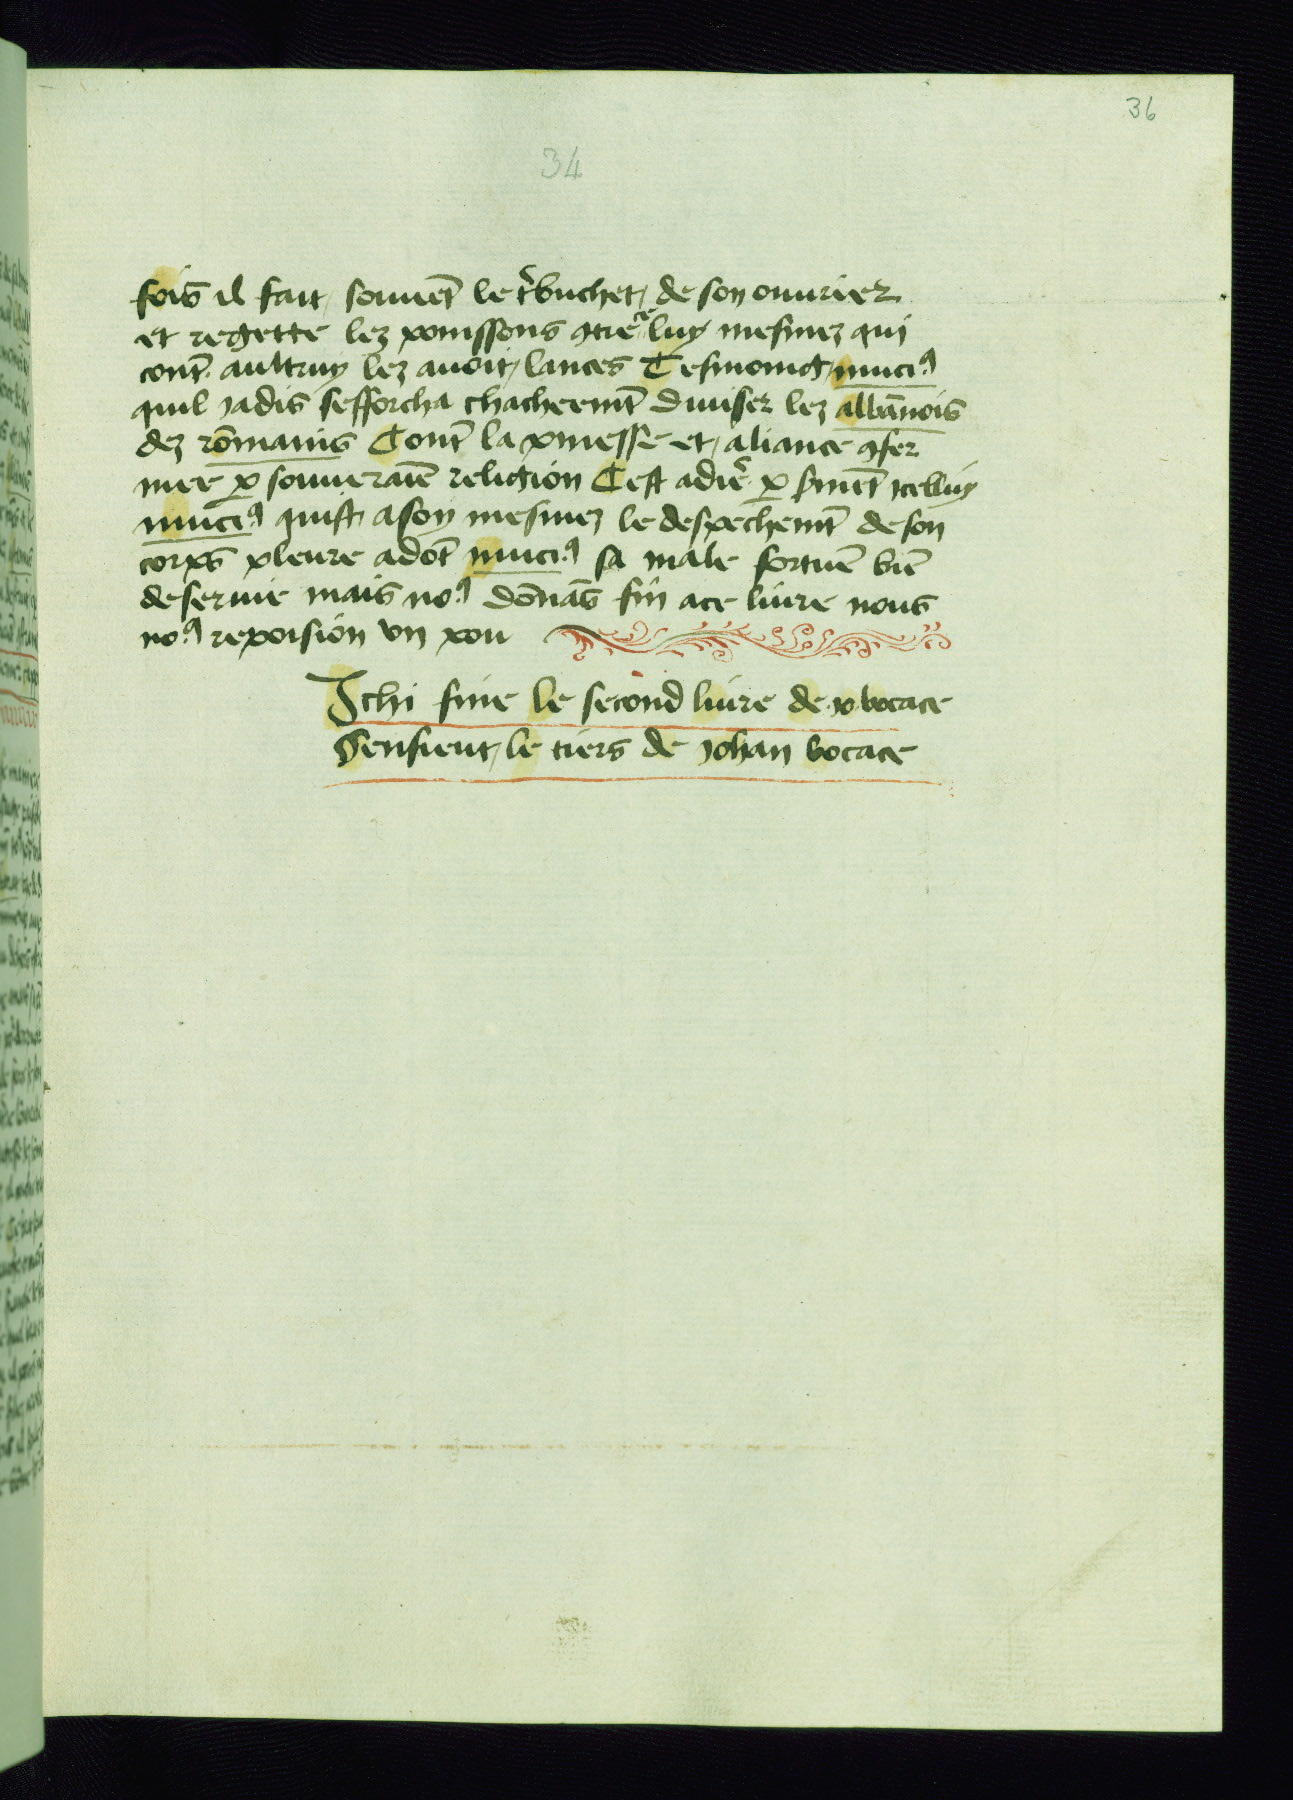 36
34
fois il fait souuēt le t̾buchet de son ouurier
et regette lez poinssons ꝯtre luy mesmez qui
cont̄ aultruy lez auoit lances Tesmoing muciꝰ
quil iadis sefforcha chacheemt̄ diuiser lez albānois
dez rōmains Cont̄ la pmesse et aliance ꝯfer
mee ꝑ souueraīe religion Cest adir̄ ꝑ srmēt icelluy
muciꝰ quist a soy mesmez le despechemt̄ de son
corps pleure adōt muciꝰ sa male fortuē biē
deseruie mais noꝰ dōnās fin a ce liure nous
noꝰ repoision vn pou
Ichi fine le second liure de bocace
Sensieut le tiers de Iohan bocace